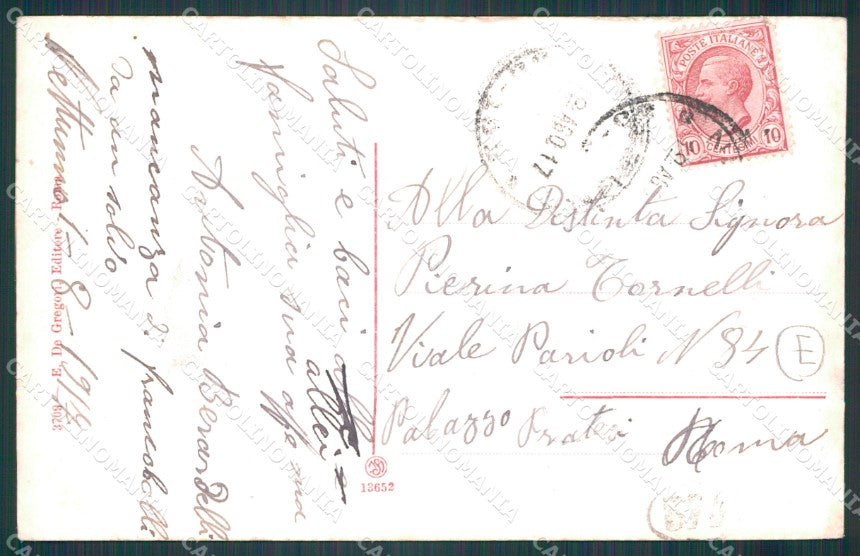 Saluti e baci
allei e
famiglia sua affma
Antonia Berardelli
mancanza di francobolli
da un soldo
Nettunno 15-8-1917
3709 - E. De Gregori Editore - Roma
13652
POSTE ITALIANE
10 CENTESIMI 10
AGO 17
Alla Distinta Signora
Pierina Tornelli
Viale Parioli N 84
E
Palazzo Frates
Roma
CARTOLINOMANIA